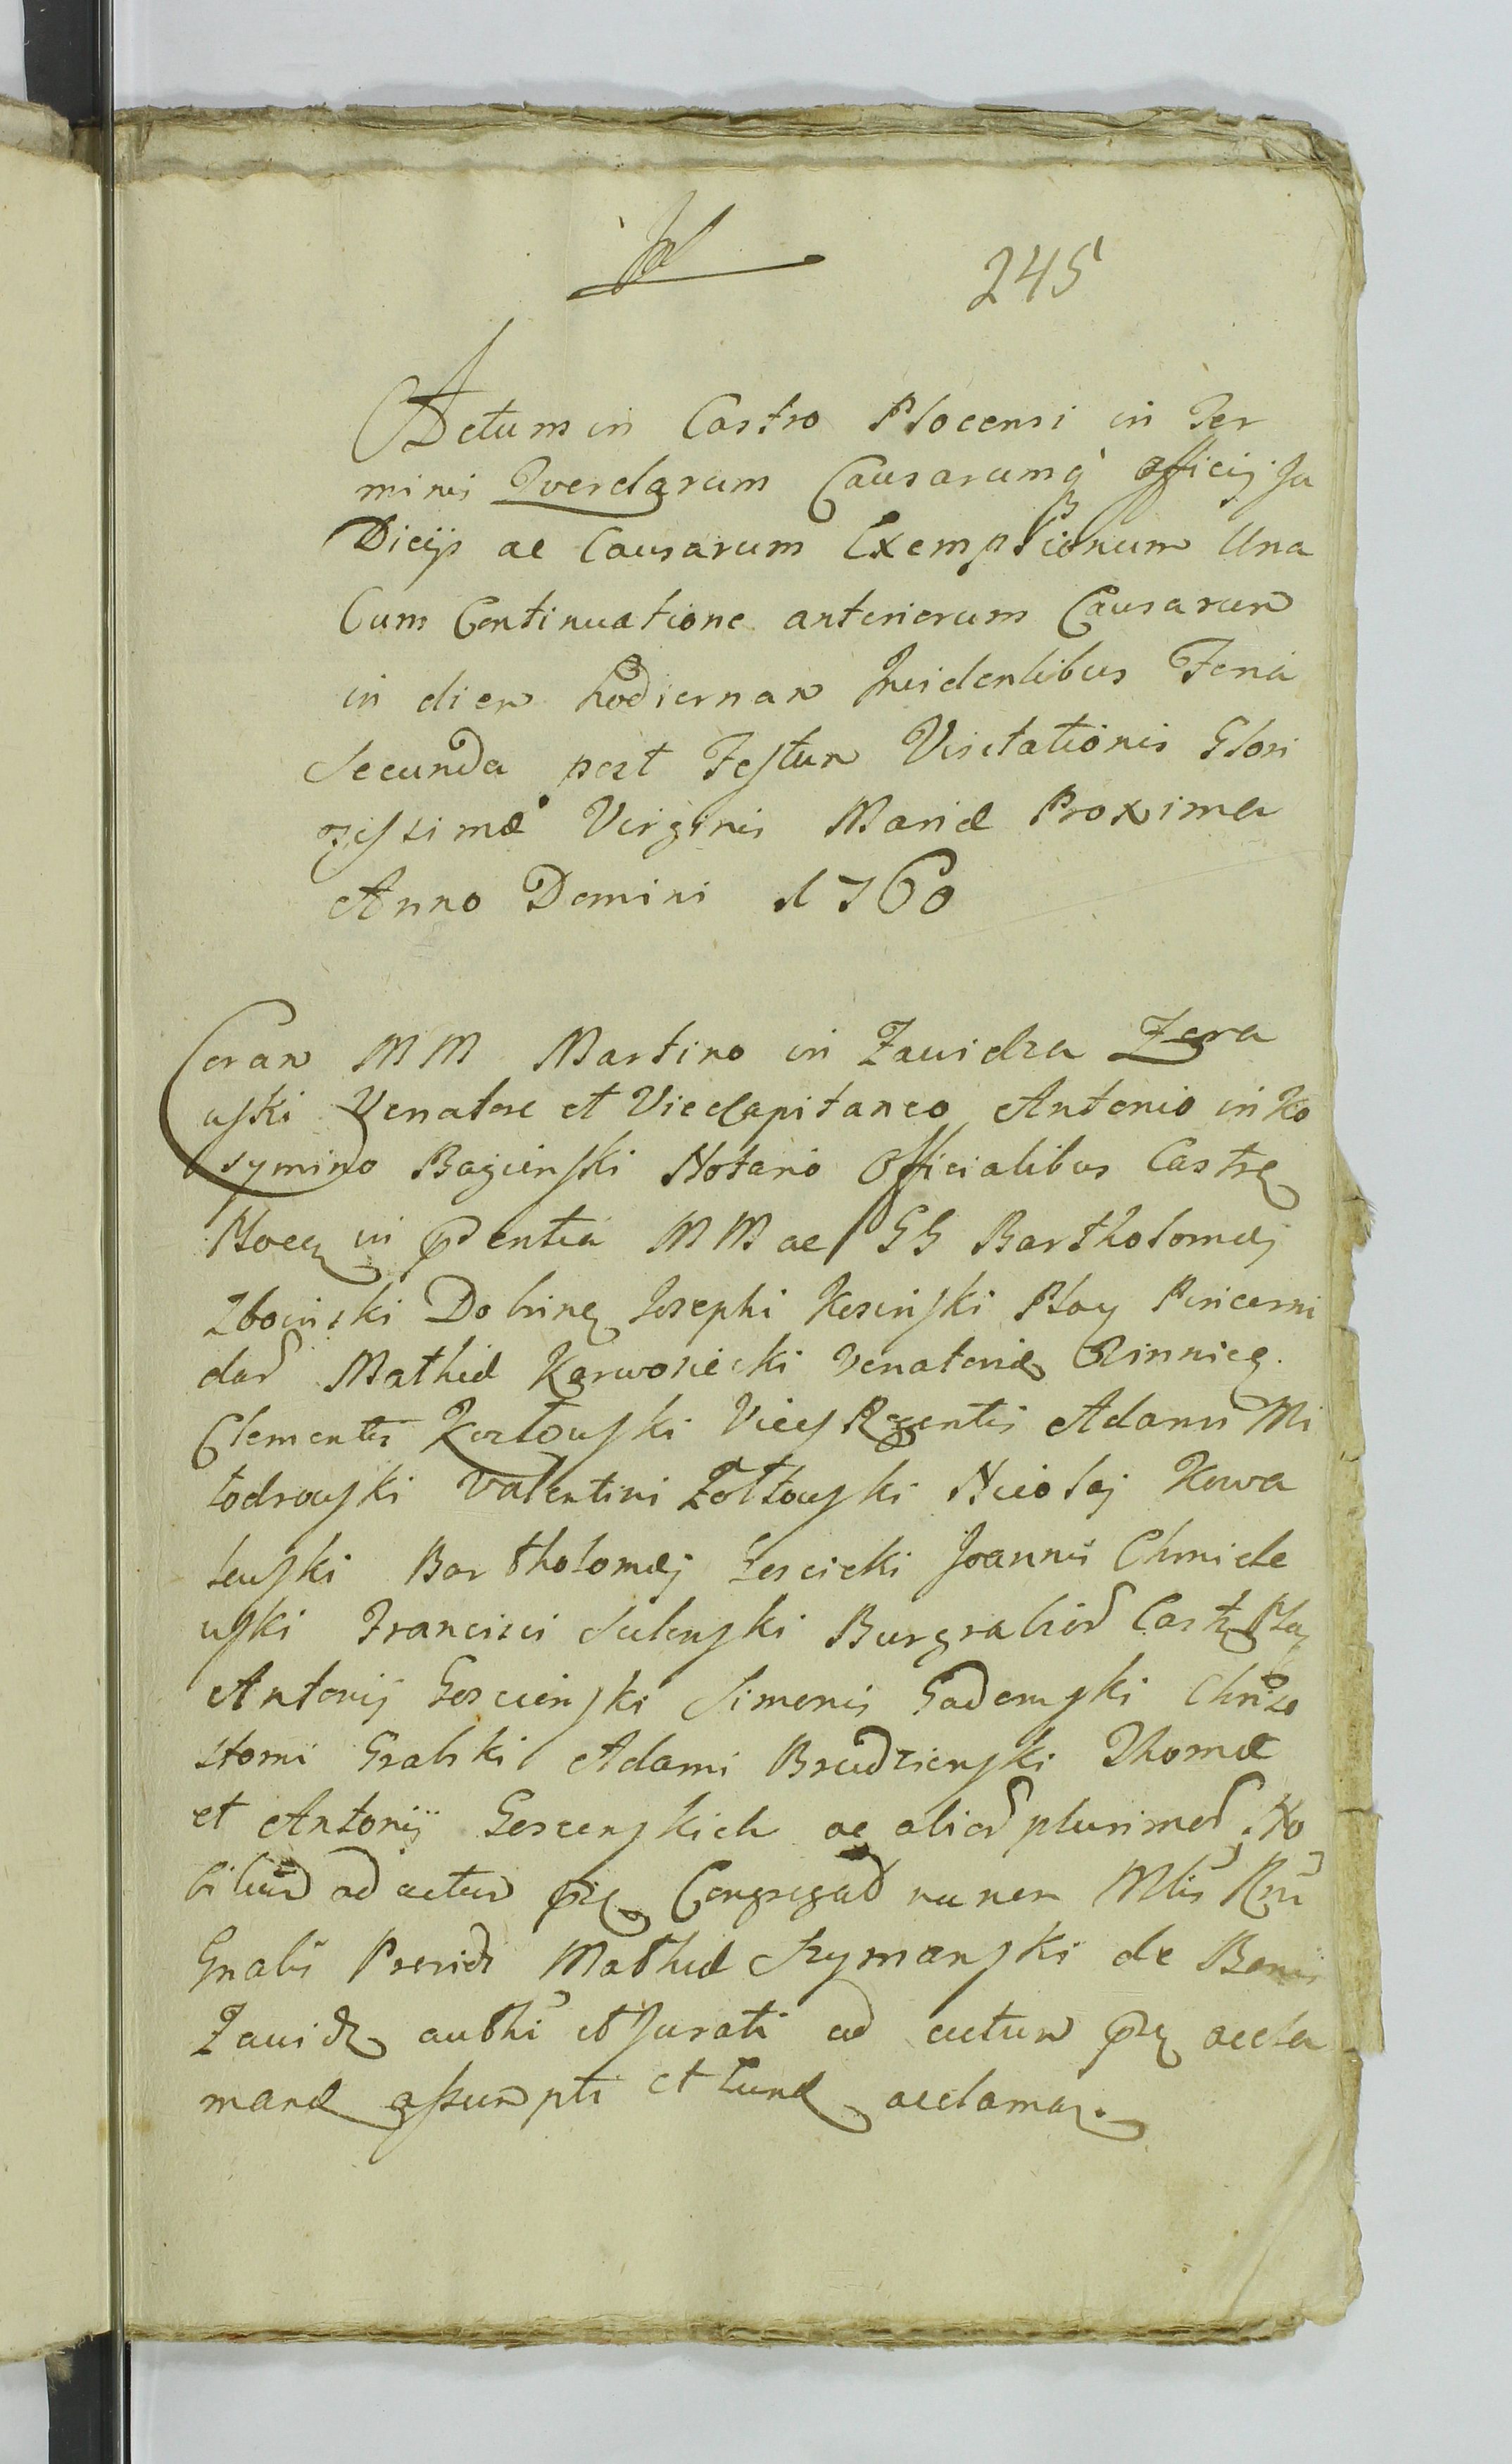 245
Actum in Castro Plocensi in Ter
minis Querelarum Causarumq officij Ju
Dicijs ac Causarum Exemptionum Una
Cum Continuatione anteriorum Causarum
in diem hodiernam Incidentibus Feria
Secunda post Festum Visitationis Glori
osissimæ Virginis Mariæ Proxima
Anno Domini 1760
Coram MM Martino in Zawidza Zera
wski Venatore et ViceCapitaneo Antonio in Ko
symino Bagieński Notario Officialibus Castr
Ploc in pñtia MM ac GG Bartholomæj
Zboinski Dobrin Josephi Kosiński Ploc Pincerni
dar Mathiæ Karwosiecki Venatoris
Clementis Kozłowski Vice Regentis Adami Mi
łodrowski Valentini Żółtowski Nicolaj Kowa
lewski Bartholomæj Joannis Chmiele
wski Francisci Sulenski Burgrabior Castr Ploc
Antonij Goscienski Simonis Gadomski Chrizo
stomi Grabski Adami Brudzienski Thomæ
et Antonij Goscenskich ac alior plurimor No
bilium ad actum Congregat
Gnalis Mathiæ Szymanski de Bonis
Zawidz authi et Jurati ad actum accla
mand assumpti et tunc acclamar.